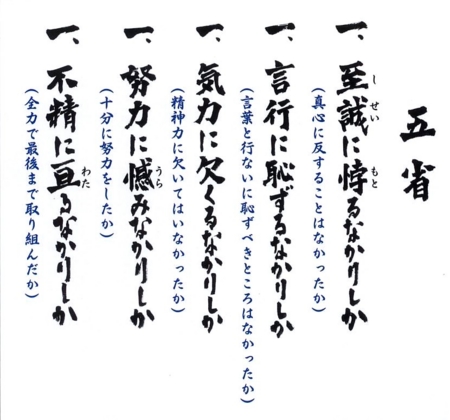 五省
一、至誠に悖るなかりしか
しせい
もと
(真心に反することはなかったか)
一、言行に恥ずるなかりしか
(言葉と行ないに恥ずべきところはなかったか)
一、気力に欠くるなかりしか
(精神力に欠いてはいなかったか)
一、努力に憾みなかりしか
うら
(十分に努力をしたか)
一、不精に亘るなかりしか
わた
(全力で最後まで取り組んだか)